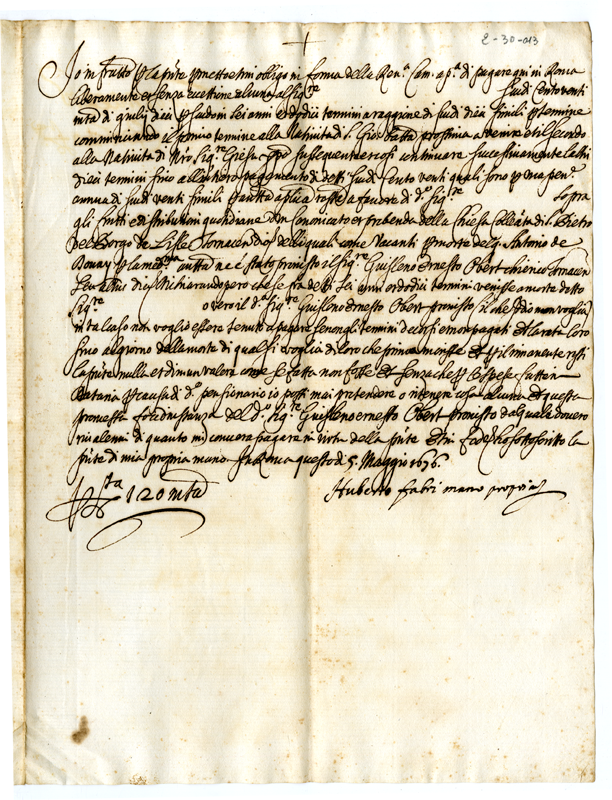 2-30-013
Io infratto p la pn̄te prometto et mi obligo in forma della Reu.ᵃ Cam. ap.ᵃ di pagare qui in Roma
liberamente et senza eccettione alcuna al Sig.ʳᵉ scudi cento venti
mta di giulij dieci p scudo in sei anni et dodici termini a raggione di scudi dieci simili p termine
comminciando il primo termine alla Natiuità di S. Gio: Batta prossima a venire et il secondo
alla Natiuità di N'ro Sig.ʳᵉ Giesu Ch'ro susseguente et così continuare successiuamente l'altri
dieci termini fino all'intiero pagamento di detti scudi cento venti quali sono p una pen.ᵉ
annua di scudi venti simili p autta aplica a fauore di d.º Sig.ʳᵉ sopra
gli frutti et distributioni quotidiane d'un Canonicato et prebenda della Chiesa Collegiata di S. Pietro
del Borgo de Lisle Tornacen delli quali come vacanti p morte de q. Antonio de
Douay p la med.ᵐᵃ autta ne è stato prouisto il Sig.ʳᵉ Guisleno Ernesto Obert chierico Tornacen
però che se fra detti sei anni et dodici termini venisse a morte detto
Sig.ʳᵉ o vero il d.º Sig.ʳᵉ Guisleno Ernesto Obert prouisto, il che Iddio non voglia
in tal caso non voglio essere tenuto a pagare se non gli termini decorsi e non pagati et la rata loro
fino al giorno della morte di qual si voglia di loro che prima morisse et p il rimanente resti
la pn̄te nulla et di niun valore come se fatta non fosse et senza che p le spese fatte in
Dataria p causa di d.º pensionario io possi mai pretendere o ritenere cosa alcuna et questa
promessa fo ad instanza del d.º Sig.ʳᵉ Guisleno ernesto Obert prouisto dal quale douerò
rileuarmi di quanto mi conuerrà pagare in virtù della pn̄te et in fede ho sottoscritto la
pn̄te di mia propria mano. In Roma questo dì 5. Maggio 1676.
120 mta
Huberto Fabri mano propria